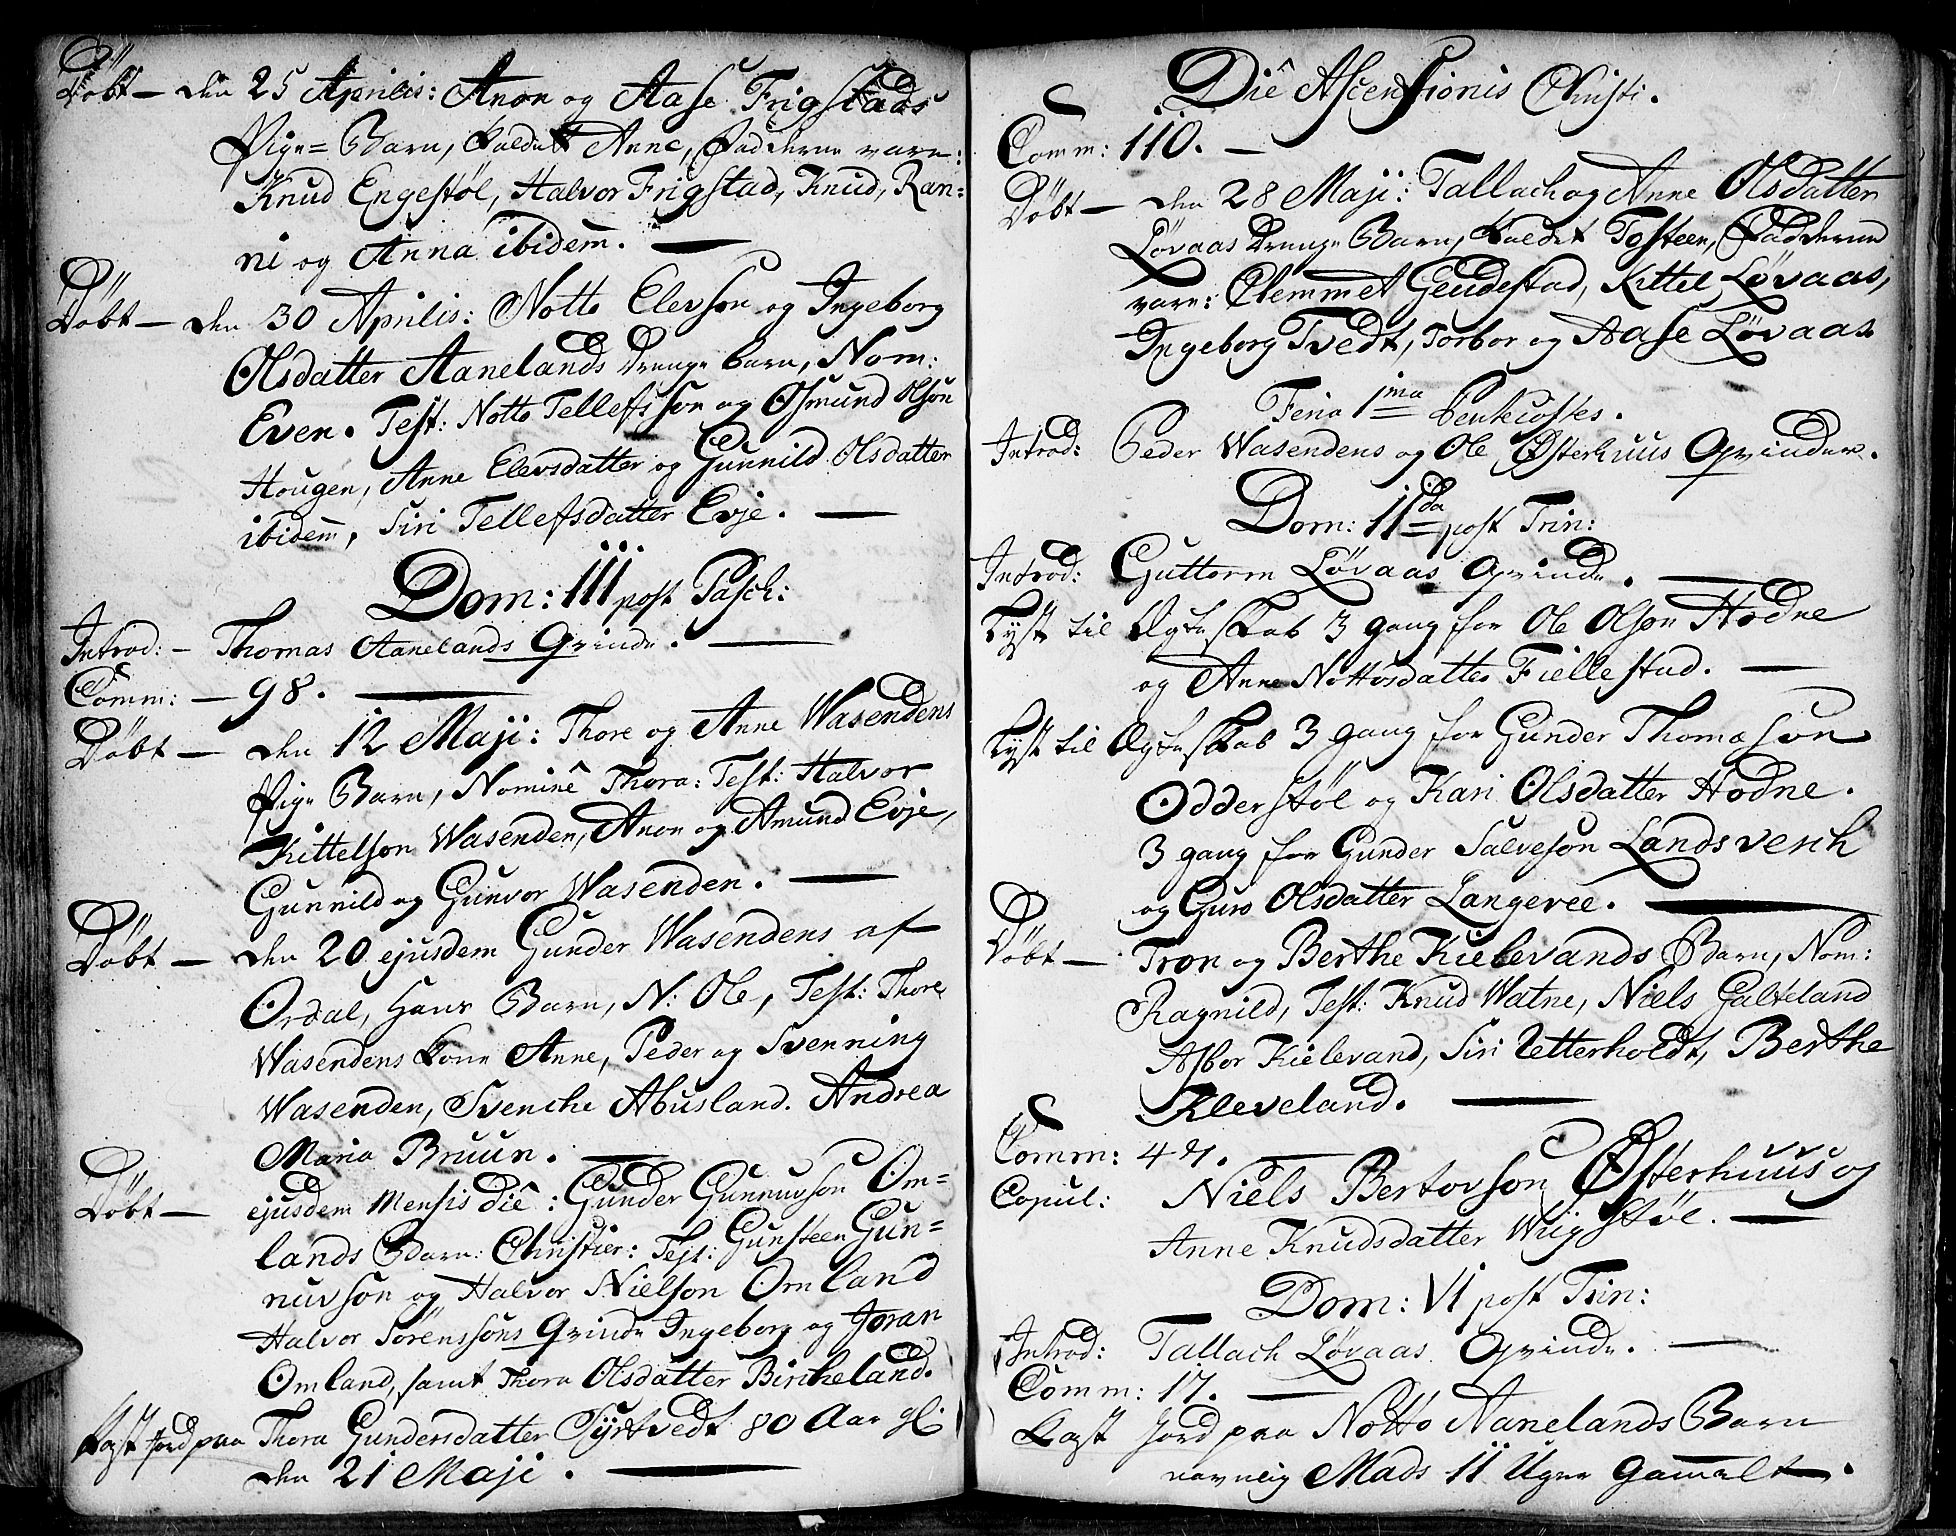 Döbt — den 25 Aprilis: Anon og Aase Frigstads
Pige=Barn, kaldet Anne, Fadderne vare:
Knud Engestøl, Halvor Frigstad, Knud, Ran=
ni og Anna ibidem. —
Döbt — den 30 Aprilis: Notto Elevson og Ingeborg
Olsdatter Aanelands Drenge barn, Nom:
Even. Test: Notto Tellefsson og Osmund Olson
Hougen, Anne Elevsdatter og Gunnild Olsdatter
ibidem, Siri Tellefsdatter Evje. —
Dom: III post Pasch:
Introd: — Thomas Aanelands Qvinde. —
Comm: — 98. —
Döbt — den 12 Maji: Thore og Anne Wasendens
Pige Barn, Nominê Thora: Test: Halvor
Kittelson Wasenden, Anon og Amund Evje,
Gunnild og Gunvor Wasenden. —
Döbt — den 20 ejusdem Gunder Wasendens af
Ordal, hans Barn, N: Ole, Test: Thore
Wasendens kone Anne, Peder og Svenning
Wasenden, Svenche Abusland. Andrea
Maria Bruun. —
Döbt — ejusdem Mensis Diê: Gunder Gunnuvson Om=
lands Barn: Christier: Test: Gunsteen Gun=
nuvson og Halvor Nielson Omland
Halvor Sörenssons Qvinde Ingeborg og Joran
Omland, samt Thora Olsdatter Birkeland.
Kast Jord paa Thora Gundersdatter Syrtvedt 80 Aar gl:
den 21 Maji. —
Diê Ascensionis Christi.
Comm: 110. —
Döbt — den 28 Maji: Tallach og Anne Olsdatter
Lövaas Drenge Barn, kaldet Tosteen, Fadderne
vare: Clemmet Geudestad, Kittel Lövaas,
Ingeborg Tvedt, Torbor og Aase Lövaas
Feria 1ma Pentecostes.
Introd: Peder Wasendens og Ole Østerhuus Qvinder.
Dom: IIda post Trin:
Introd: Guttorm Lövaas Qvinde. —
Lyst til Ægteskab 3 gang for Ole Olson Hodne
og Anne Nottosdatter Fiellestad. —
Lyst til Ægteskab 3 gang for Gunder Thomæson
Odderstöl og Kari Olsdatter Hodne.
3 gang for Gunder Salveson Landsverch
og Guro Olsdatter Langeree. —
Döbt — Tron og Berthe Kielevands Barn, Nom:
Ragnild, Test: Knud Watne, Niels Galteland
Asbor Kielevand, Siri Uetterholdt, Berthe
Kleveland. —
Comm: 47. —
Copul: Niels Bertovson Østerhuus og
Anne Knudsdatter Wiigstöl. —
Dom: VI post Trin:
Introd: Tallach Lövaas Qvinde. —
Comm: 17. —
Kast Jord paa Notto Aanelands Barn
navnlig Mads 11 Uger gamalt.